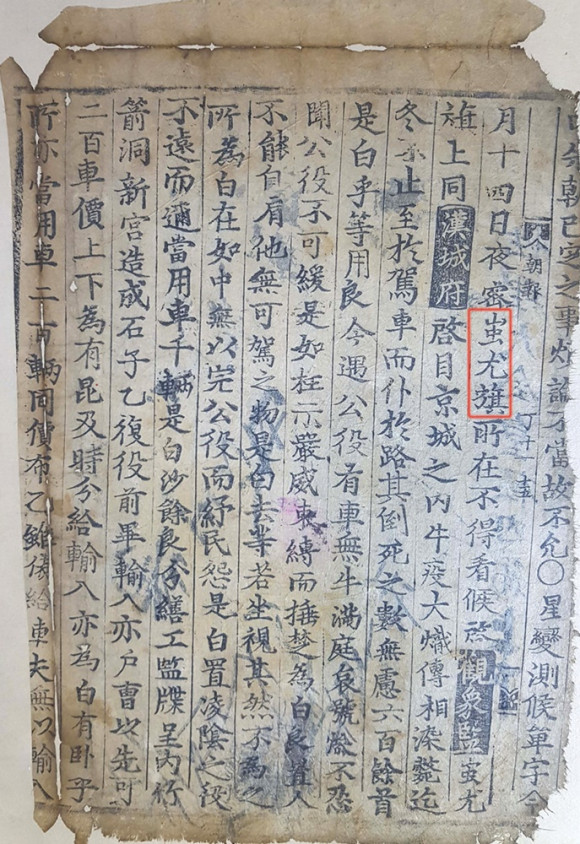 今朝已定之事煩論不當故不允〇星變測候單字今
月十四日夜密蚩尤旗所在不得看候啓觀象監蚩尤
旗上同漢城府啓目京城之內牛疫大熾傳相染斃迄
冬不止至於駕車而仆於路其倒死之數無慮六百餘首
是白乎等用良今遇公役有車無牛滿庭哀號慘不忍
聞公役不可緩是如枉示嚴威束縛而捶楚為白良置人
不能自有他無可駕之物是白去等若坐視其然不為之
所為白在如中無以完公役而紓民怨是白置凌陰之役
不遠而邇當用車千輛是白沙餘良兮繕工監牒呈內竹
箭洞新宮造成石子乙復役前畢輸入亦戶曹以先可
二百車價上下為有昆及時兮給輸入亦為白有卧乎
所亦當用車二百輛同價布乙雖備給車夫無以輸入